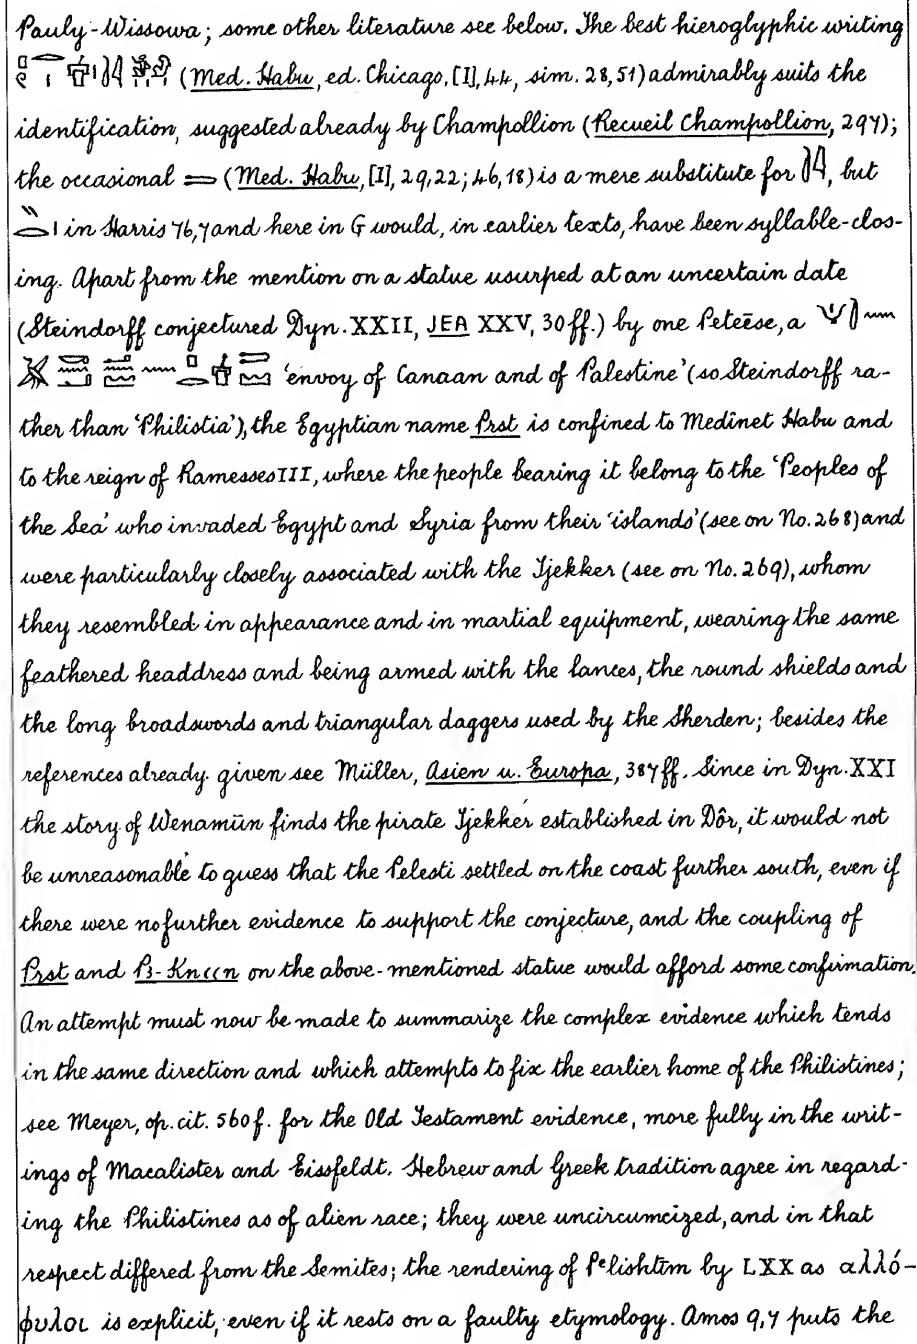 Pauly-Wissowa; some other literature see below. The best hieroglyphic writing
(Med. Habu, ed. Chicago, [I], 44, sim. 28, 51) admirably suits the
identification, suggested already by Champollion (Recueil Champollion, 297);
the occasional (Med. Habu, [I], 29, 22; 46, 18) is a mere substitute for , but
in Harris 76, 7 and here in G would, in earlier texts, have been syllable-clos-
ing. Apart from the mention on a statue usurped at an uncertain date
(Steindorff conjectured Dyn. XXII, JEA XXV, 30 ff.) by one Peteēse, a
'envoy of Canaan and of Palestine' (so Steindorff ra-
ther than 'Philistia'), the Egyptian name Prst is confined to Medînet Habu and
to the reign of Ramesses III, where the people bearing it belong to the 'Peoples of
the Sea' who invaded Egypt and Syria from their 'islands' (see on No. 268) and
were particularly closely associated with the Tjekker (see on No. 269), whom
they resembled in appearance and in martial equipment, wearing the same
feathered headdress and being armed with the lances, the round shields and
the long broadswords and triangular daggers used by the Sherden; besides the
references already given see Müller, Asien u. Europa, 387 ff. Since in Dyn. XXI
the story of Wenamūn finds the pirate Tjekker established in Dôr, it would not
be unreasonable to guess that the Pelesti settled on the coast further south, even if
there were no further evidence to support the conjecture, and the coupling of
Prst and P3-Knccn on the above-mentioned statue would afford some confirmation.
An attempt must now be made to summarize the complex evidence which tends
in the same direction and which attempts to fix the earlier home of the Philistines;
see Meyer, op. cit. 560 f. for the Old Testament evidence, more fully in the writ-
ings of Macalister and Eissfeldt. Hebrew and Greek tradition agree in regard-
ing the Philistines as of alien race; they were uncircumcized, and in that
respect differed from the Semites; the rendering of Pᵉlishtīm by LXX as αλλό-
φυλοι is explicit, even if it rests on a faulty etymology. Amos 9, 7 puts the